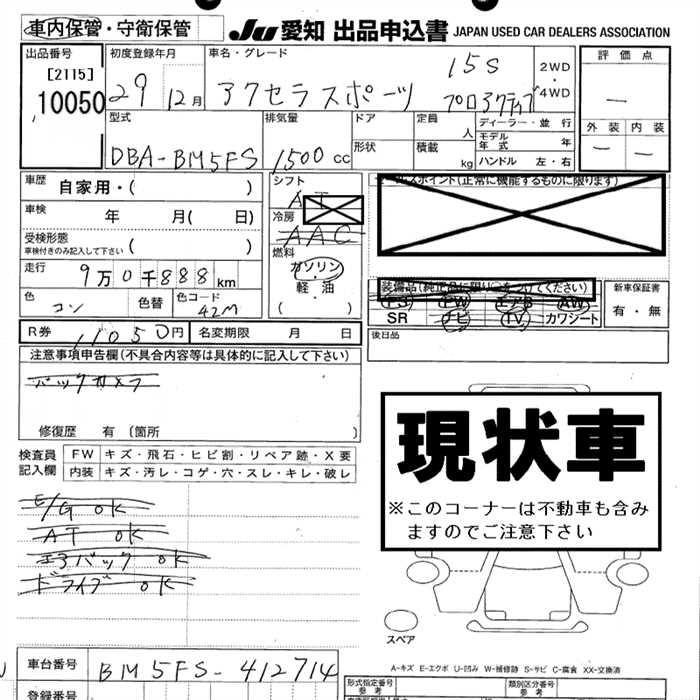 車内保管・守衛保管
JU 愛知 出品申込書 JAPAN USED CAR DEALERS ASSOCIATION
出品番号 [2115] 10050
初度登録年月 29 12月
車名・グレード アクセラスポーツ 15S プロアクティブ
2WD・4WD
評価点 —
外装 — 内装 —
型式 DBA-BM5FS
排気量 1500cc
ドア
形状
定員 人
積載 kg
ディーラー・並行
モデル年式 年
ハンドル 左・右
車歴 自家用・( )
車検 年 月( 日)
受検形態 車検付きのみ記入して下さい ( )
走行 9万0千888km
色 コン 色替 色コード 42M
シフト AT
冷房 AAC
燃料 ガソリン・軽油 ( )
セールスポイント(正常に機能するものに限ります)
装備品(純正品に限り○をつけてください)
PS PW エアB AW
SR ナビ TV カワシート
新車保証書 有・無
後日品
R券 11050円 名変期限 月 日
注意事項申告欄(不具合内容等は具体的に記入して下さい)
バックカメラ
修復歴 有 〔箇所 〕
検査員記入欄
FW キズ・飛石・ヒビ割・リペア跡・X要
内装 キズ・汚レ・コゲ・穴・スレ・キレ・破レ
E/G OK
AT OK
エアバック OK
ドライブ OK
現状車
※このコーナーは不動車も含みますのでご注意下さい
スペア
A-キズ E-エクボ U-凹み W-補修跡 S-サビ C-腐食 XX-交換済
車台番号 BM5FS-412714
登録番号
形式指定番号 参考
類別区分番号 参考